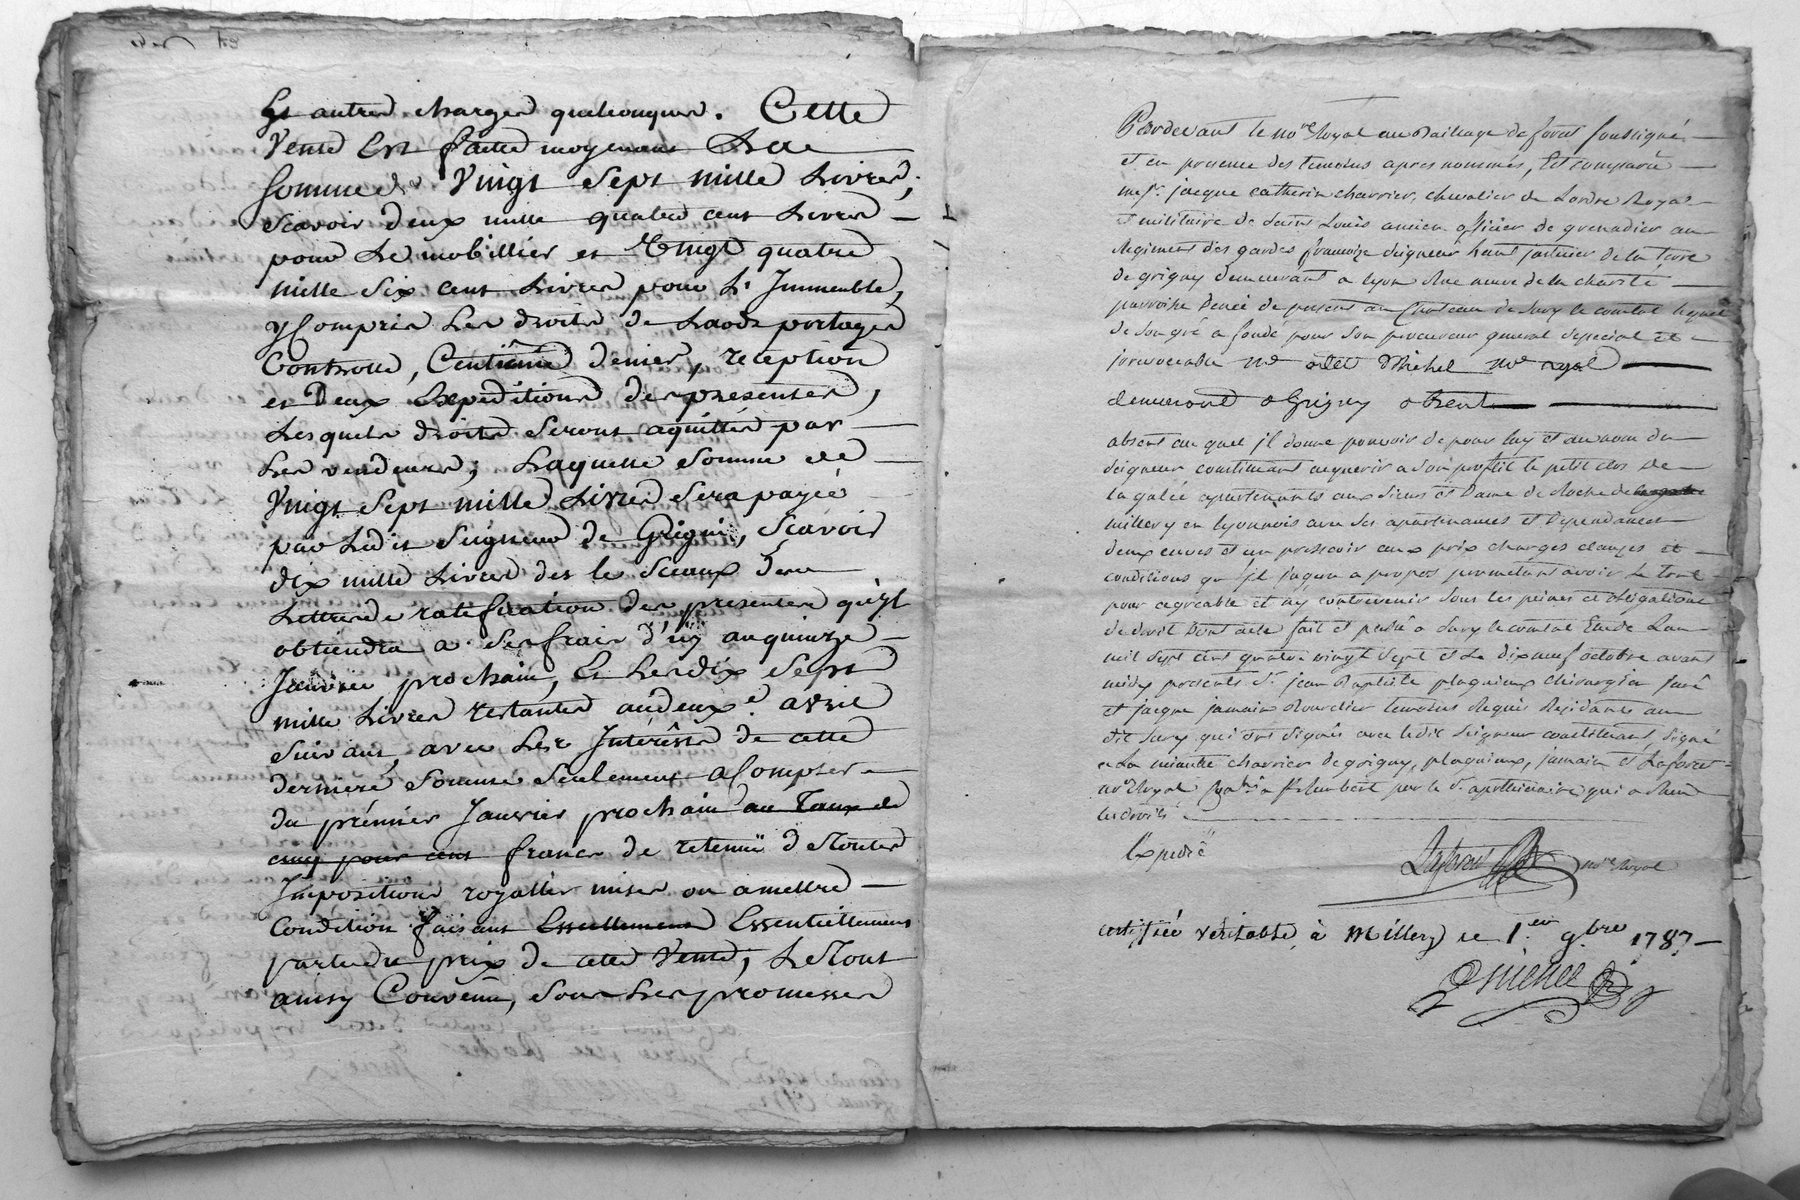 Et autres charges quelconques. Cette
Vente Est faitte moyenant La
somme de Vingt Sept mille Livres,
scavoir deux mille quatre cent Livres
pour Le mobillier et Vingt quatre
mille six cent Livres pour L'Immeuble,
y Compris Les droits de Laods portages
Controlle, Centiéme denier, reception
et Deux Expeditions des presentes,
Lesquels droits seront aquittés par
Les vendeurs; Laquelle somme de
Vingt Sept mille Livres sera payée
par Ledit Seigneur de Grigni, Scavoir
dix mille Livres des le sceaux des
Lettres de ratification des presentes qu'il
obtiendra a ses frais d'icy au quinze
Janvier prochain, Et Les dix Sept
mille Livres restantes au deux e avril
suivant, avec Les Intérêts de cette
derniere somme seulement a Compter
du prémier Janvier prochain au Taux de
cinq pour cent francs de retenüe de Toutes
Impositions royalles mises ou a mettre
Condition faisant Essentiellement
partie du prix de cette Vente, Le Tout
ainsy Convenu, sous Les promesses
Pardevant le no.re Royal au Bailliage de forest soussigné
et en presence des temoins apres nommés, fut comparu
mes.r jacque catherin charrier, chevalier de Lordre Royal
et militaire de saint Louis ancien officier de grenadier au
Regiment des gardes françoise seigneur haut justicier de la terre
de grigny demeurant a lyon Rue neuve de la charité
parroisse Denée de present au Chateau de Sury le comtal lequel
de son gré a fondé pour son procureur general special et
irrevocable
demeurant a Grigny
absent au quel il donne pouvoir de pour luy et au nom du
seigneur constituant acquerir a son proffit le petit clos de
la galée apartenants aux sieur et Dame de Roche de
millery en lyonnois avec ses apartenances et dependances
deux cuves et un pressoir aux prix charges clauses et
conditions qu'il jugera a propos promettant avoir le tout
pour agreable et n'y contrevenir sous les peines et obligations
de droit Dont acte fait et passé a Sury le comtal Etude Lan
mil sept cent quatre vingt sept et Le dixneuf octobre avant
midy presents s.r jean Baptiste plagnieux chirurgien juré
et jacque jamain Bourelier temoins Requis Residants au
dit Sury qui ont signés avec le dit Seigneur constituant, signé
a La minutte charrier de grigny, plagnieux, jamain et Laforest
no.re Royal
les droits
Expedié
Laforest no.re Royal
certiffiée véritable, à Millery ce 1.er 9.bre 1787